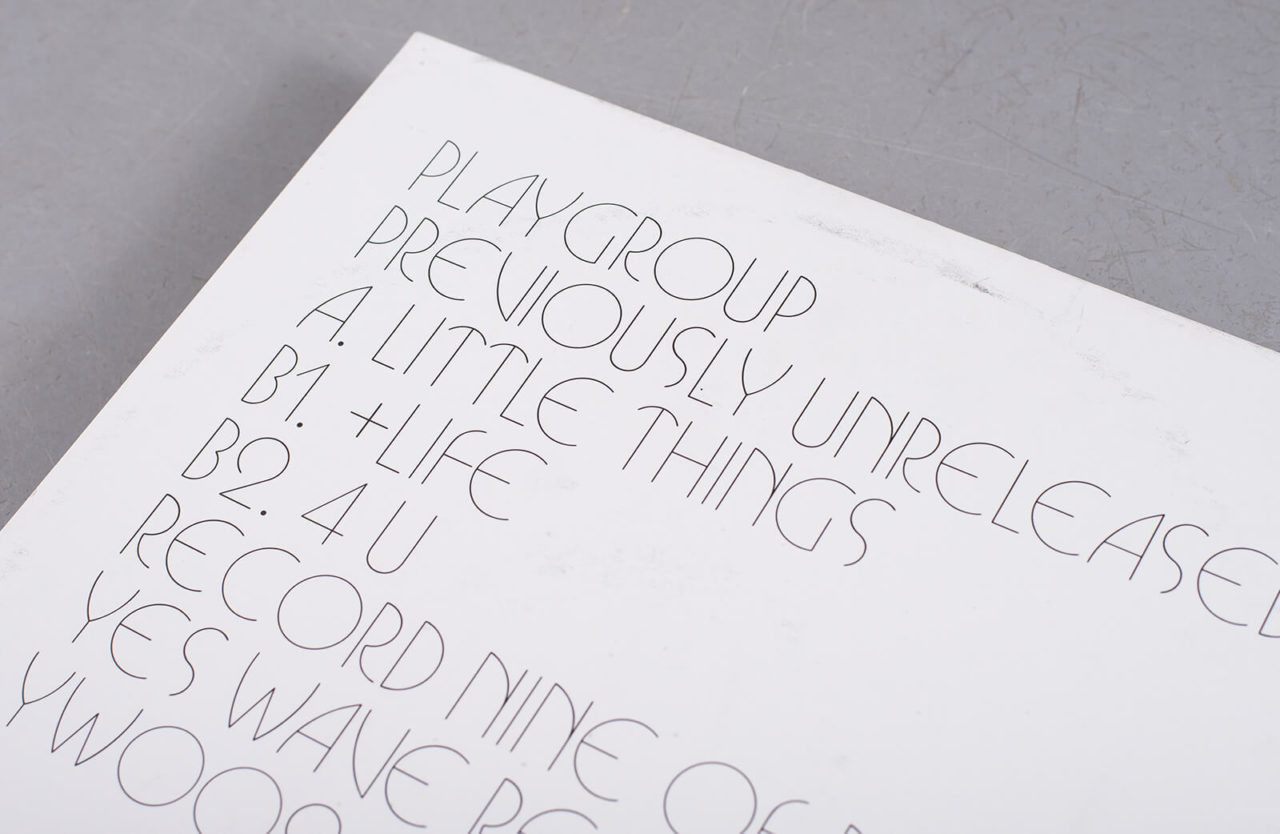 PLAYGROUP
PREVIOUSLY UNRELEASED
A. LITTLE THINGS
B1. +LIFE
B2. 4 U
RECORD NINE OF
YES WAVE RE
YWOOO